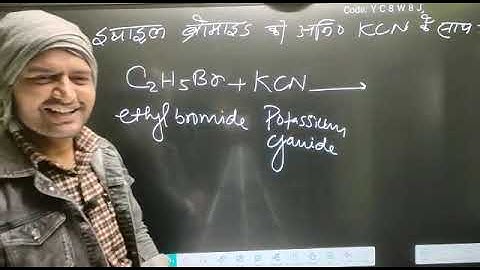 Code: Y C 8 W 8 J
इथाइल ब्रोमाइड की अभि० KCN के साथ
C₂H₅Br + KCN ⟶
ethyl bromide Potassium
cyanide